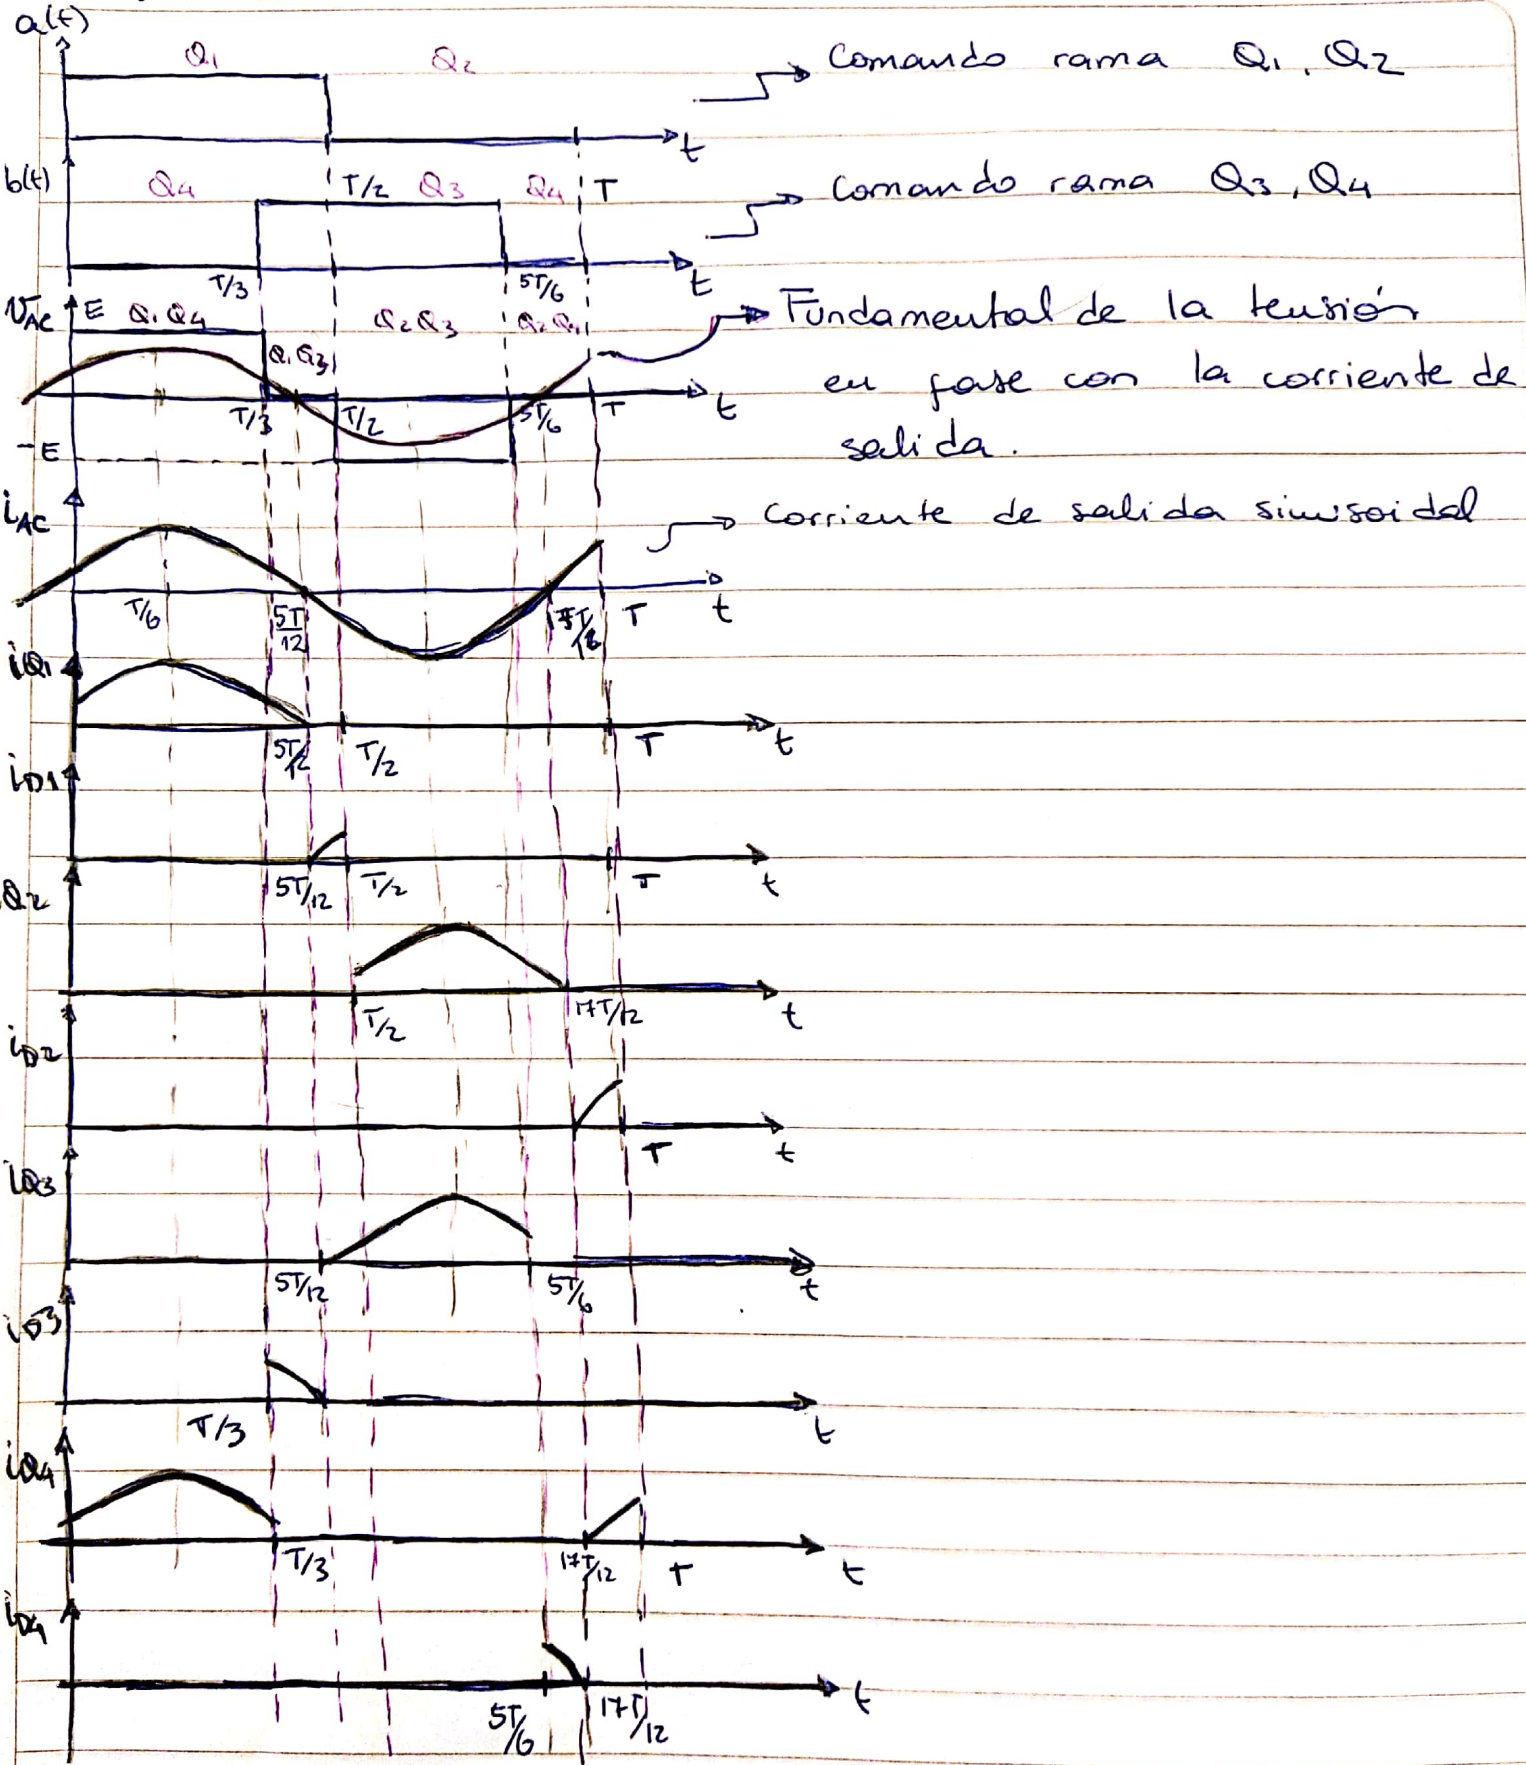 a(t)
Q1 Q2 Comando rama Q1, Q2
t
b(t) Q4 T/2 Q3 Q4 T Comando rama Q3, Q4
T/3 5T/6 t
VAC E Q1Q4 Q2Q3 Q2Q4 Fundamental de la tensión
Q1Q3 en fase con la corriente de
T/3 T/2 5T/6 T t
-E salida.
iAC Corriente de salida sinusoidal
T/6 5T/12 T t
iQ1
5T/12 T/2 T t
iD1
5T/12 T/2 T t
Q2
T/2 17T/12 t
iD2
T t
iQ3
5T/12 5T/6 t
iD3
T/3 t
iQ4
T/3 17T/12 T t
iD4
5T/6 17T/12 t